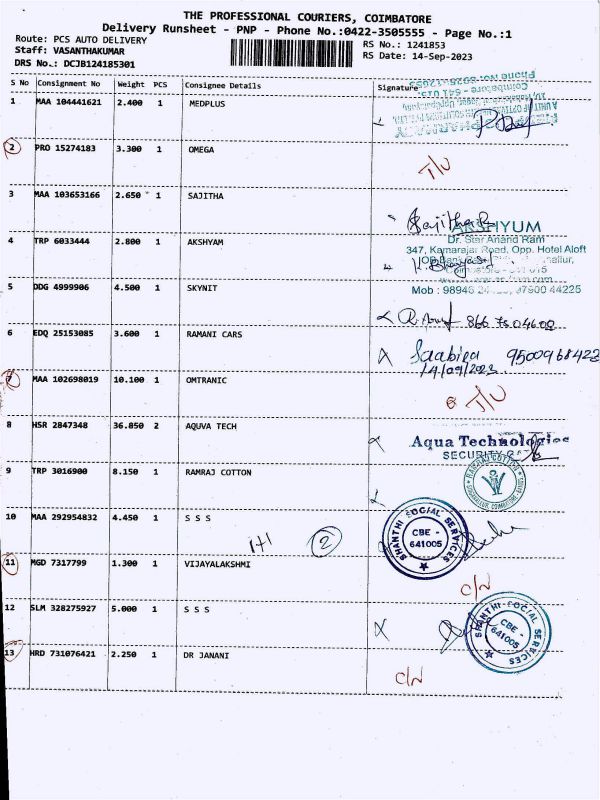 THE PROFESSIONAL COURIERS, COIMBATORE
Delivery Runsheet - PNP - Phone No.:0422-3505555 - Page No.:1
Route: PCS AUTO DELIVERY RS No.: 1241853
Staff: VASANTHAKUMAR RS Date: 14-Sep-2023
DRS No.: DCJB124185301
S No Consignment No Weight PCS Consignee Details Signature
1 MAA 104441621 2.400 1 MEDPLUS
2 PRO 15274183 3.300 1 OMEGA
3 MAA 103653166 2.650 1 SAJITHA
Sajitha
AKSHYUM
Dr. Star Anand Ram
4 TRP 6033444 2.800 1 AKSHYAM
347, Kamarajar Road, Opp. Hotel Aloft
5 DDG 4999906 4.500 1 SKYNIT
Mob : 98946 97900 44225
6 EDQ 25153085 3.600 1 RAMANI CARS
Saabira 9500968423
14/09/2023
7 MAA 102698019 10.100 1 OMTRANIC
8 HSR 2847348 36.850 2 AQUVA TECH
Aqua Technologies
SECURITY
9 TRP 3016900 8.150 1 RAMRAJ COTTON
RAMRAJ COTTON
10 MAA 292954832 4.450 1 S S S
1+1 2
SHANTHI SOCIAL SERVICES
CBE -
641005
11 MGD 7317799 1.300 1 VIJAYALAKSHMI
C/N
12 SLM 328275927 5.000 1 S S S
SHANTHI SOCIAL SERVICES
CBE -
641005
13 HRD 731076421 2.250 1 DR JANANI
C/N